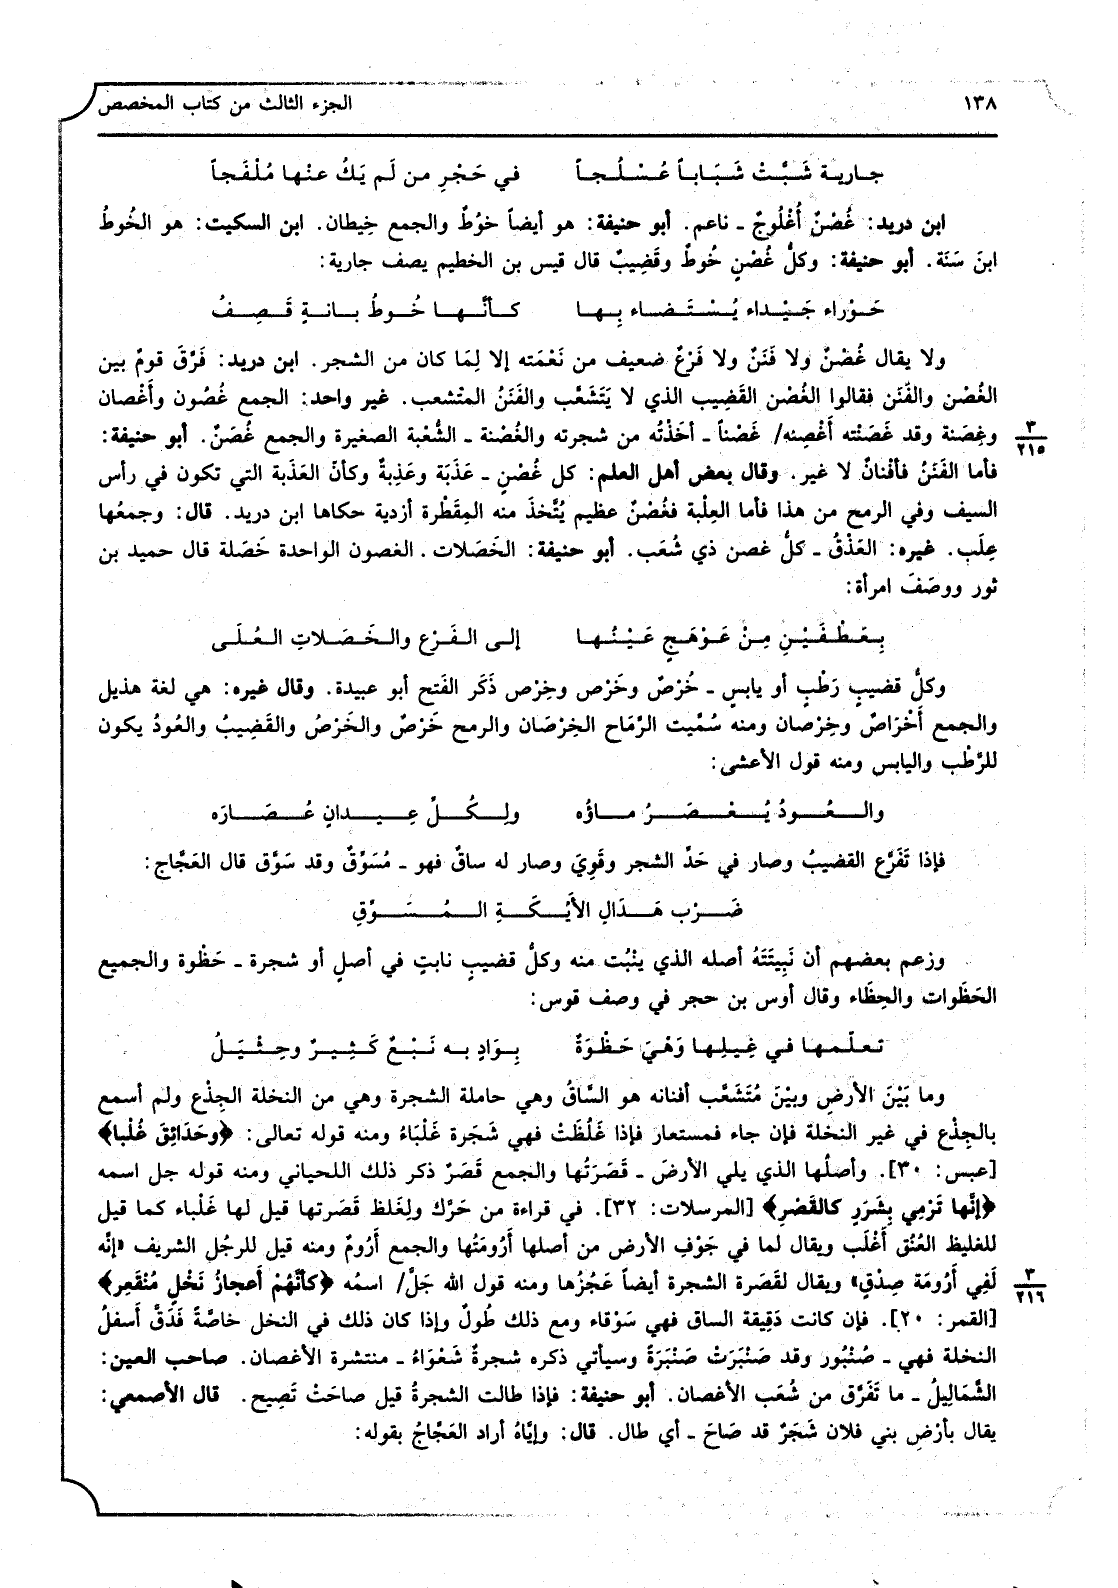 ١٣٨ الجزء الثالث من كتاب المخصص
جارية شَبَّتْ شَبَاباً عُسْلُجاً في حَجْرِ من لَم يَكُ عنْها مُلْفَجاً
ابن دريد: غُصْنٌ أُغْلُوجٌ ـ ناعم. أبو حنيفة: هو أيضاً خوُطٌ والجمع خِيطان. ابن السكيت: هو الخُوطُ
ابنَ سَنَة. أبو حنيفة: وكلُّ غُصْنٍ خُوطٌ وقَضِيبٌ قال قيس بن الخطيم يصف جارية:
حَوْراء جَيْداء يُسْتَضاء بِها كأنَّها خُوطُ بانةٍ قَصِفُ
ولا يقال غُصْنٌ ولا فَنَنٌ ولا فَرْعٌ ضعيف من نَعْمَته إلا لِمَا كان من الشجر. ابن دريد: فَرَّقَ قومٌ بين
الغُصْن والفَنَن فقالوا الغُصْن القَضِيب الذي لا يَتَشَعَّب والفَنَنُ المتْشعب. غير واحد: الجمع غُصُون وأَغْصان
وغِصَنة وقد غَصَنْته أَغْصِنه/ غَصْناً ـ أخَذْتُه من شجرته والغُصْنة ـ الشُّعْبة الصغيرة والجمع غُصَنٌ. أبو حنيفة: ٣/٢١٥
فأما الفَنَنُ فأفْنانٌ لا غير. وقال بعض أهل العلم: كل غُصْنٍ ـ عَذَبَة وعَذِبةٌ وكأنّ العَذَبة التي تكون في رأس
السيف وفي الرمح من هذا فأما العِلْبة فغُصْنٌ عظيم يُتَّخذَ منه المِقَطْرة أزدية حكاها ابن دريد. قال: وجمعُها
عِلَب. غيره: العَذْقُ ـ كلُّ غصن ذي شُعَب. أبو حنيفة: الخَصَلات. الغصون الواحدة خَصَلة قال حميد بن
ثور ووصَفَ امرأة:
بِعَطْفَيْنِ مِنْ عَوْهَجٍ عَيْنُها إلى الفَرْع والخَصَلاتِ العُلَى
وكلُّ قضيبٍ رَطْبٍ أو يابسٍ ـ خُرْصٌ وخَرْص وخِرْص ذَكَر الفَتح أبو عبيدة. وقال غيره: هي لغة هذيل
والجمع أَخْرَاصٌ وخِرْصان ومنه سُمِّيت الرِّمَاح الخِرْصَان والرمح خَرْصٌ والخَرْصُ والقَضِيبُ والعُودُ يكون
للرَّطْب واليابس ومنه قول الأعشى:
والعُودُ يُعْصَرُ ماؤُه ولِكُلِّ عِيدانٍ عُصَارَه
فإذا تَفَرَّع القضيبُ وصار في حَدِّ الشجر وقَوِيَ وصار له ساقٌ فهو ـ مُسَوَّقٌ وقد سَوَّق قال العَجَّاج:
ضَرْب هَدَالِ الأَيْكَةِ المُسَوَّقِ
وزعم بعضهم أن نَبِيتَتَهُ أصله الذي ينْبُت منه وكلُّ قضيبٍ نابتٍ في أصلٍ أو شجرة ـ حَظْوة والجميع
الحَظَوات والحِظَاء وقال أوس بن حجر في وصف قوس:
تعلّمها في غِيلِها وَهْيَ حَظْوَةٌ بِوَادٍ به نَبْعٌ كَثِيرٌ وحِثْيَلُ
وما بَيْنَ الأرضِ وبيْنَ مُتَشَعَّب أفنانه هو السَّاقُ وهي حاملة الشجرة وهي من النخلة الجِذْع ولم أسمع
بالجِذْع في غير النخلة فإن جاء فمستعار فإذا غَلُظَتْ فهي شَجَرة غَلْبَاءُ ومنه قوله تعالى: ﴿وحَدَائِقَ غُلْبا﴾
[عبس: ٣٠]. وأصلُها الذي يلي الأرضَ ـ قَصَرَتُها والجمع قَصَرٌ ذكر ذلك اللحياني ومنه قوله جل اسمه
﴿إنَّها تَرْمِي بِشَرَرٍ كالقَصْرِ﴾ [المرسلات: ٣٢]. في قراءة من حَرَّك ولِغَلظ قَصَرتها قيل لها غَلْباء كما قيل
للغليظ العُنُق أَغْلَب ويقال لما في جَوْفِ الأرض من أصلها أَرُومَتُها والجمع أَرُومٌ ومنه قيل للرجُل الشريف «إنَّه
لَفِي أَرُومَة صِدْقٍ» ويقال لقَصَرة الشجرة أيضاً عَجُزُها ومنه قول الله جَلَّ/ اسمُه ﴿كأنَّهُمْ أَعجازُ نَخْلٍ مُنْقَعِرٍ﴾ ٣/٢١٦
[القمر: ٢٠]. فإن كانت دَقِيقة الساق فهي سَوْقاء ومع ذلك طُولٌ وإذا كان ذلك في النخل خاصَّةً فَدَقَّ أَسفلُ
النخلة فهي ـ صُنْبُور وقد صَنْبَرَتْ صَنْبَرَةً وسيأتي ذكره شجرةٌ شَعْوَاءُ ـ منتشرة الأغصان. صاحب العين:
الشَّمَالِيلُ ـ ما تَفَرَّق من شُعَب الأغصان. أبو حنيفة: فإذا طالت الشجرةُ قيل صاحَتْ تَصِيح. قال الأصمعي:
يقال بأرْضِ بني فلان شَجَرٌ قد صَاحَ ـ أي طال. قال: وإيَّاهُ أراد العَجَّاجُ بقوله: